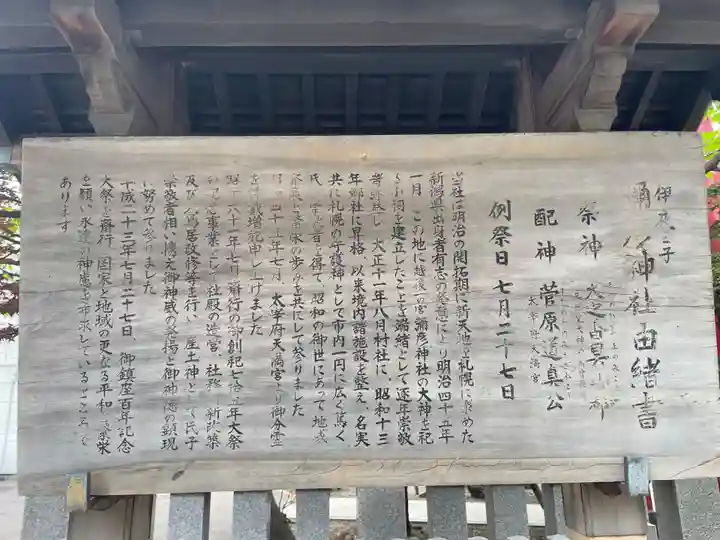 伊夜日子
彌彦神社由緒書
祭神
配神 菅原道真公
太宰府天満宮
例祭日 七月二十七日
当社は明治の開拓期に新天地を札幌に求めた
新潟県出身者有志の発意により明治四十五年
一月 この地に越後一宮彌彦神社の大神を祀
る小祠を建立したことを端緒として逐年崇敬
大正十一年八月村社に 昭和十三
年郷社に昇格 以来境内諸施設を整え 名実
共に札幌の守護神として市内一円に広く篤く
を得て 昭和の御世にあって地域
の歩みを共にして参りました
年七月 太宰府天満宮より御分霊
を 増祀申し上げました
六十一年七月 斎行の御創祀七十五年大祭
事業として社殿の造営、社務所新改築
及び 居改修等を行い 産土神として氏子
崇敬者相い携え御神威の発揚と御神徳の顕現
に努めて参りました
平成二十三年七月二十七日、御鎮座百年記念
大祭を斎行 国家と地域の更なる平和と栄
を願い 永遠の神恵を希求しているところで
あります